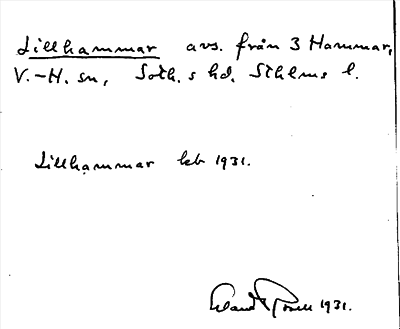 Lillhammar avs. från 3 Hammar,
V.-H. sn, Soth.s hd, Sthlms l.
Lillhammar kb 1931.
Erland Rosell 1931.